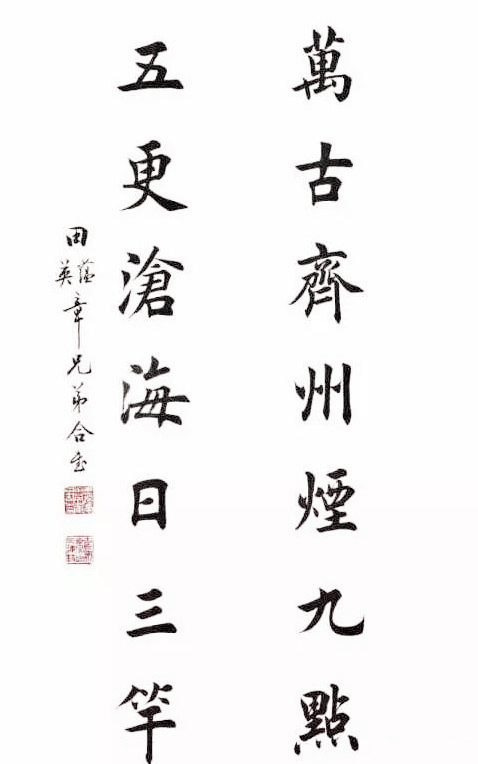 萬古齊州煙九點
五更滄海日三竿
田蘊章英章兄弟合書